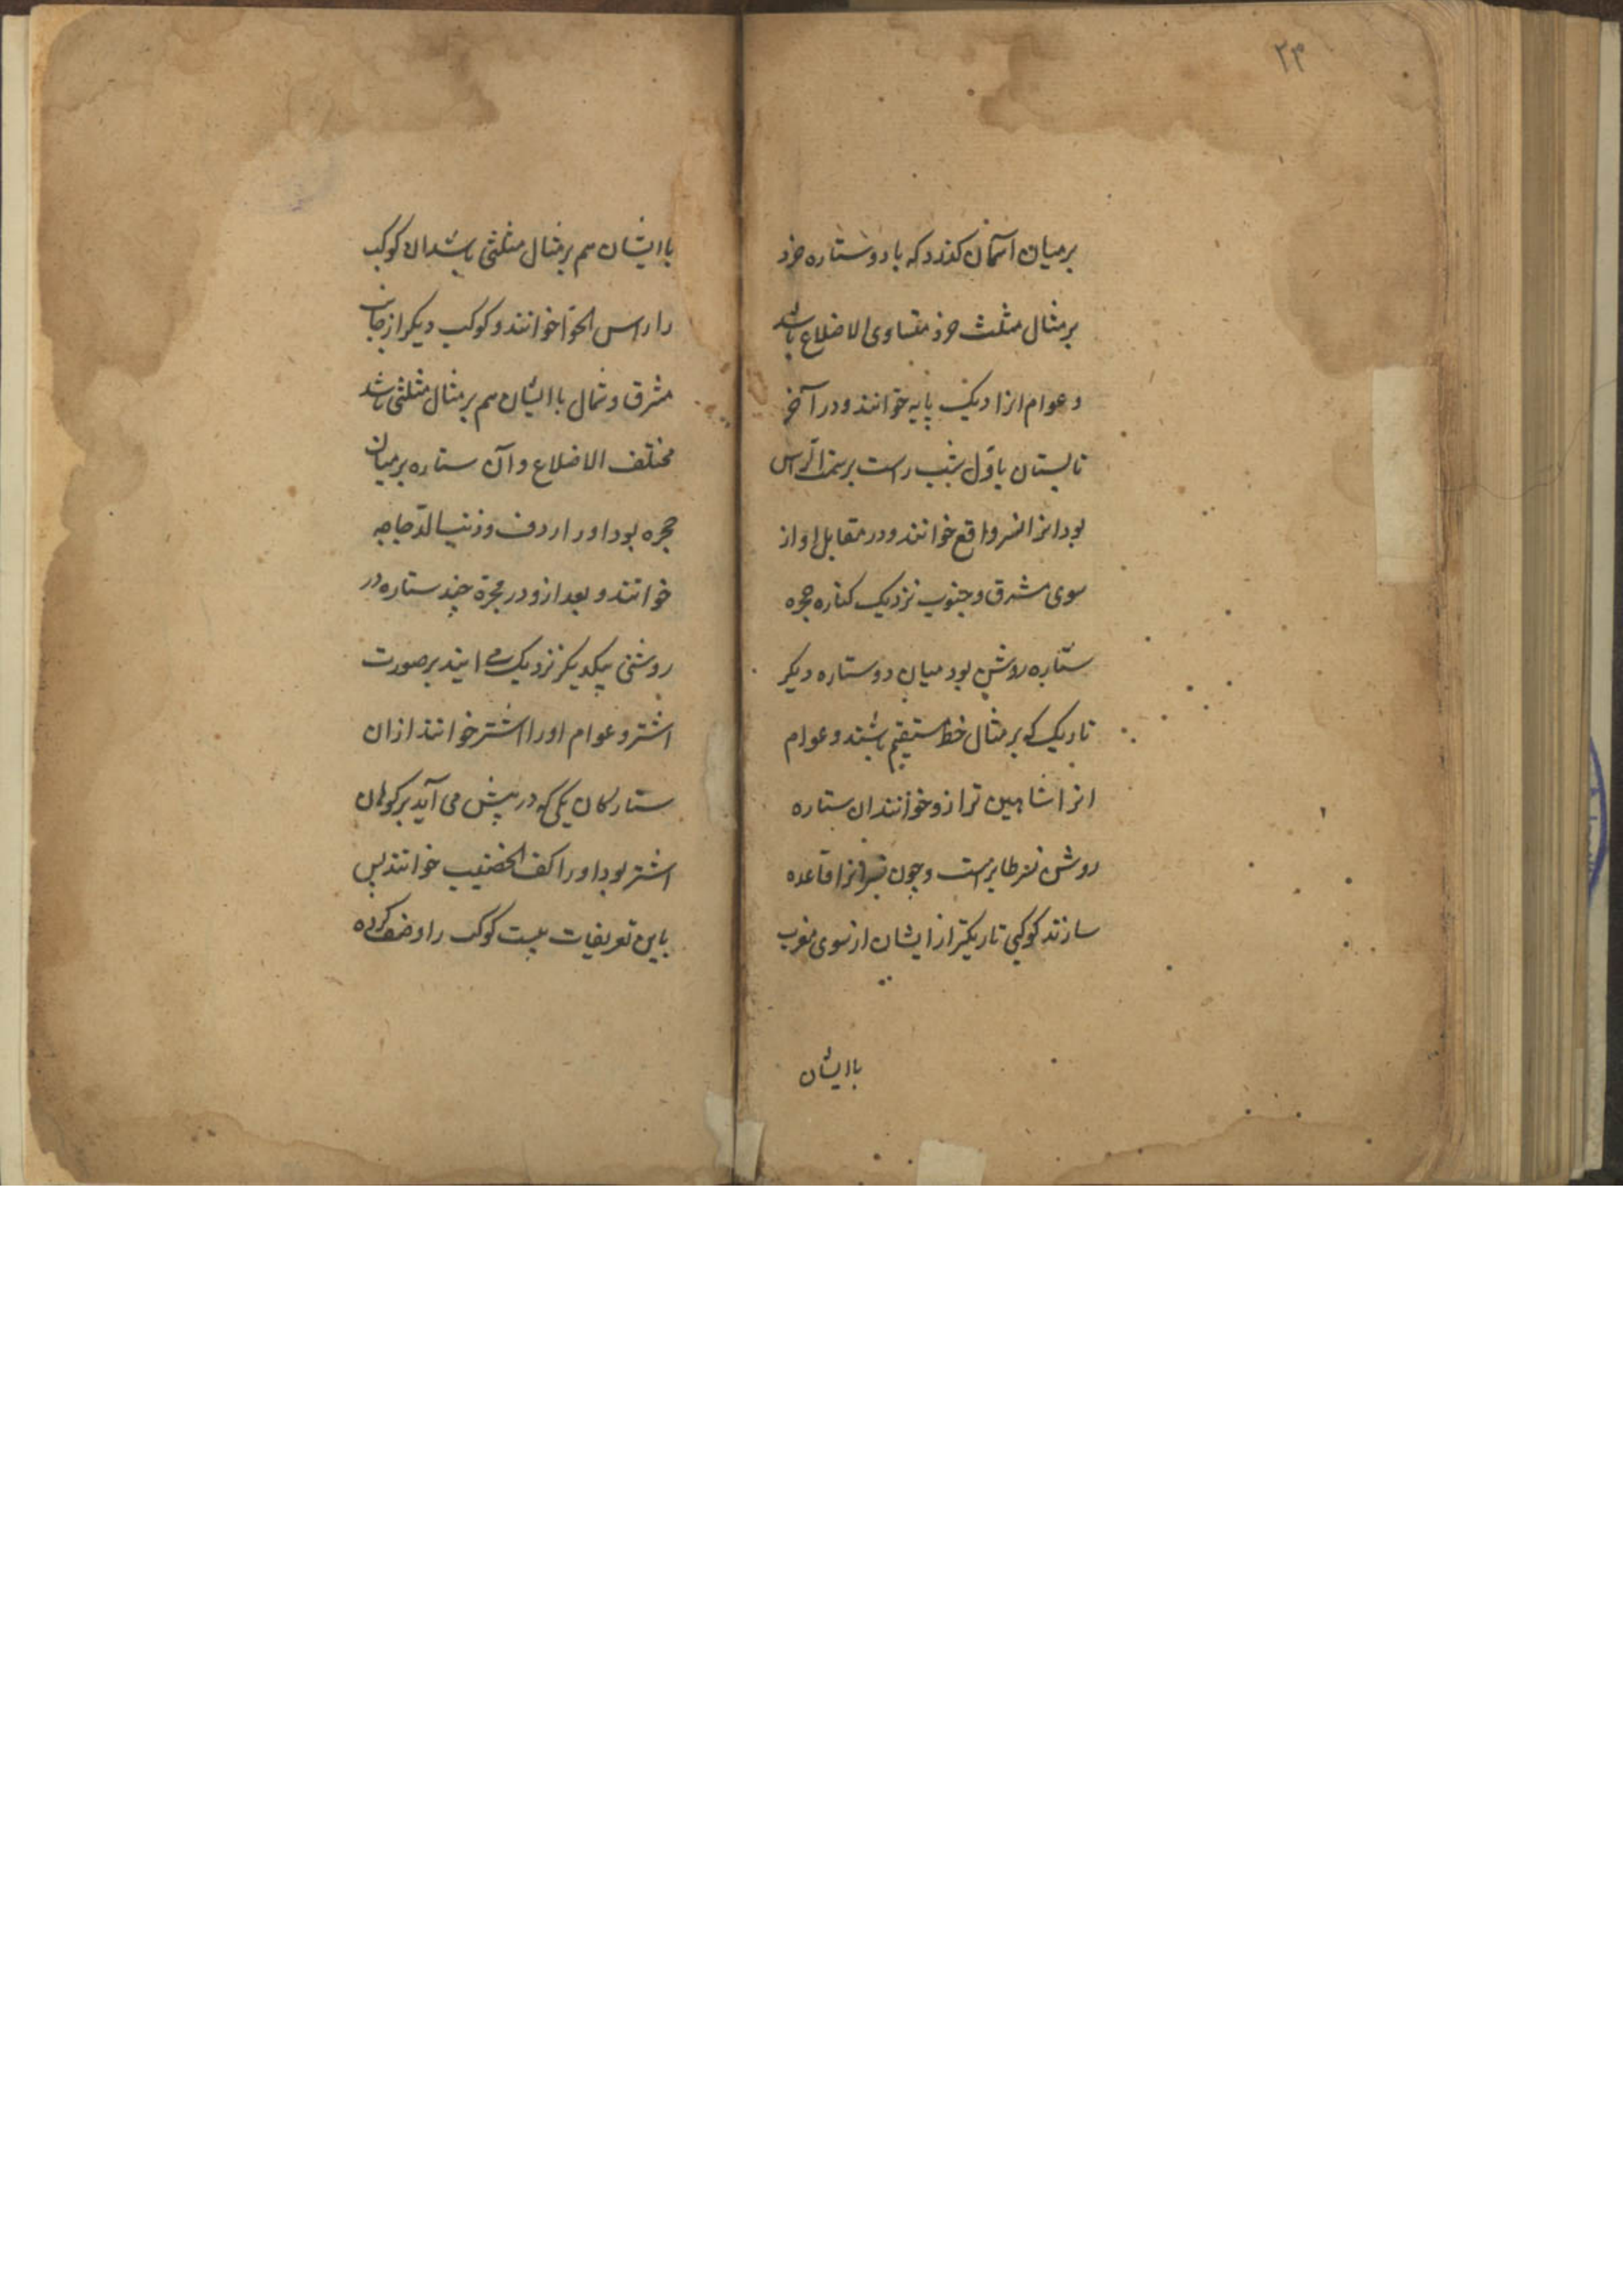 ۲۴
بر میان آسمان کذرد که با دو ستاره خرد
بر مثال مثلث خرد متساوی الاضلاع باشد
و عوام انرا دیک پایه خوانند و در آخر
تابستان باول شب راست بر سمت الراس
بود انرا نسر واقع خوانند و در مقابل او از
سوی مشرق و جنوب نزدیک کناره مجره
ستاره روشن بود میان دو ستاره دیکر
تاریک که بر مثال خط مستقیم باشند و عوام
انرا شاهین ترازو خوانند ان ستاره
روشن نسر طایر است و چون نسرانرا قاعده
سازند کوکبی تاریکتر از ایشان از سوی مغرب
با ایشان
با ایشان هم بر مثال مثلثی باشد ان کوکب
را راس الحوا خوانند و کوکب دیکر از جانب
مشرق و شمال با ایشان هم بر مثال مثلثی باشد
مختلف الاضلاع و آن ستاره بر میان
مجره بود اورا ردف و ذنب الدجاجه
خوانند و بعد ازو در مجرة چند ستاره در
روشنی بیکدیکر نزدیک می ایند بر صورت
اشتر و عوام اورا اشتر خوانند ازان
ستارکان یکی که در پیش می آید بر کوهان
اشتر بود اورا کف الخضیب خوانند پس
باین تعریفات بیست کوکب را وصف کرده